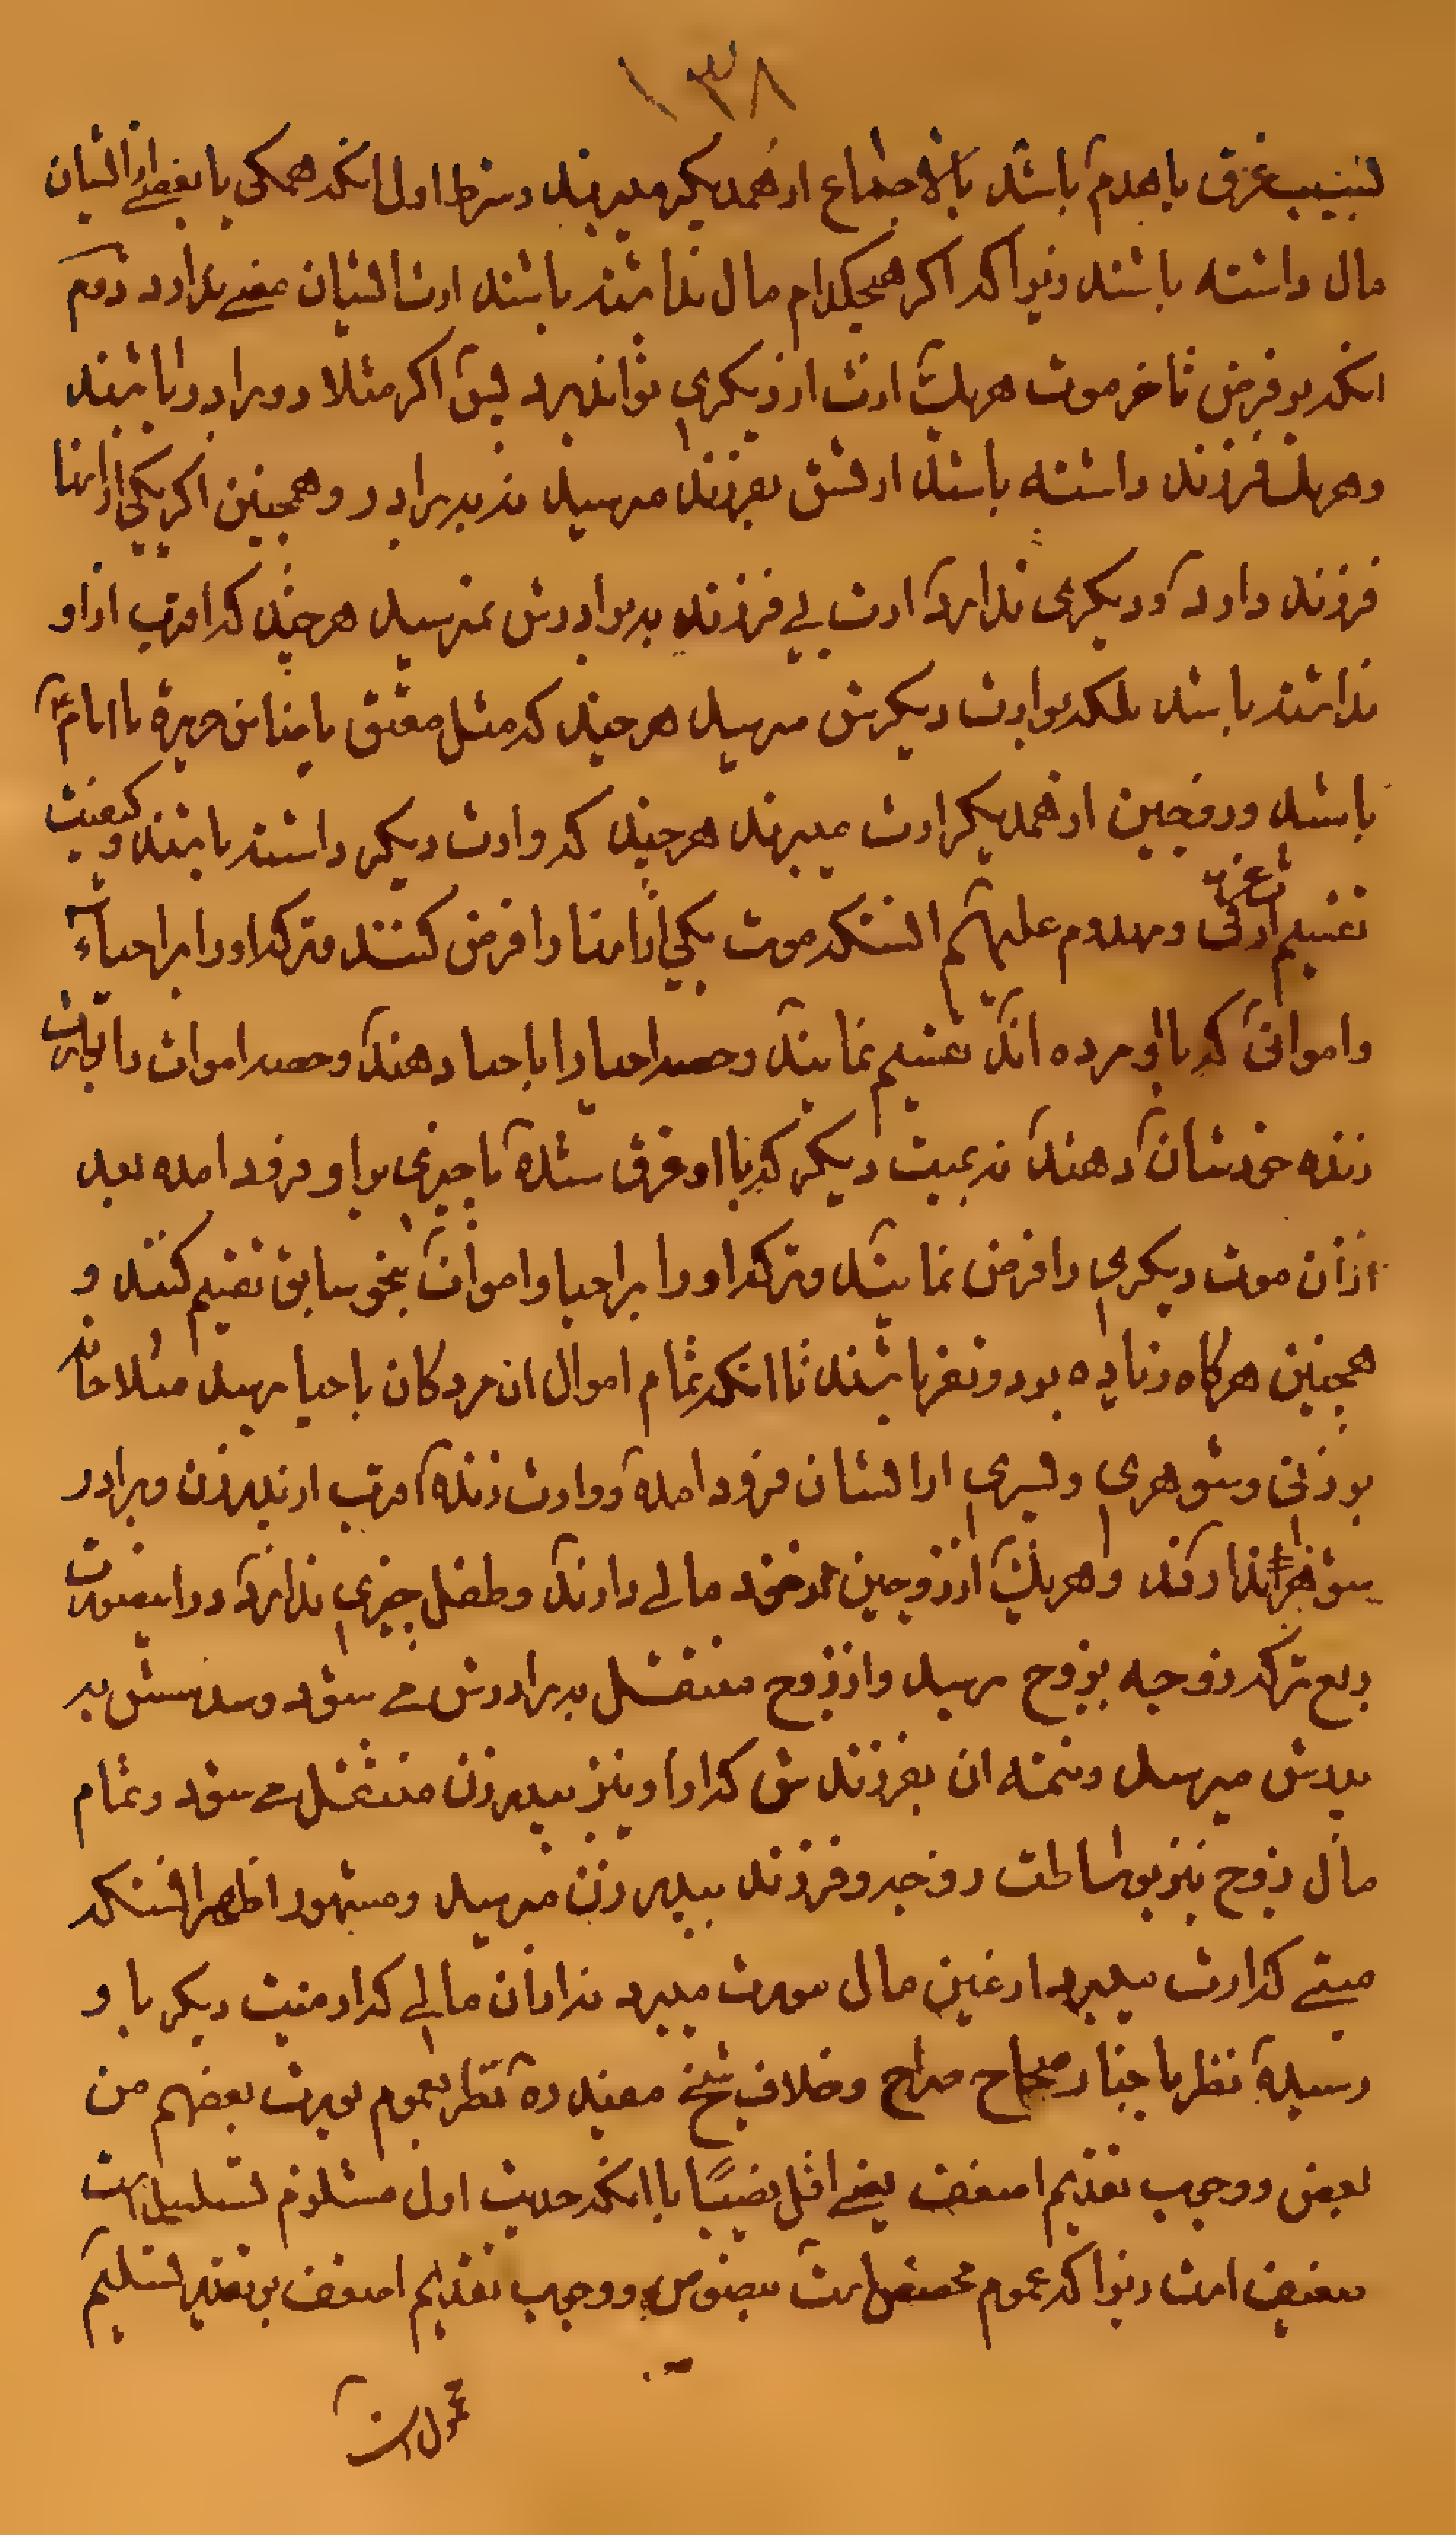 ۱۳۸
بسبب غرق یا هدم باشد بالاجماع از همدیکر میبرند و شرط اول انکه همکی یا بعضی از ایشان
مال داشته باشند زیرا که اکر هیچکدام مال نداشته باشند ارث ایشان معنی ندارد دوم
انکه بر فرض تاخر موت هر یک ارث از دیکری تواند برد پس اکر مثلا دو برادر باشند
و هر یک فرزند داشته باشند ارثش بفرزند میرسد نه ببرادر و همچنین اکر یکی از اینها
فرزند دارد و دیکری ندارد ارث بی فرزند ببرادرش نمیرسد هر چند که اقرب از او
نداشته باشد بلکه بوارث دیکرش میرسد هر چند که مثل معتق یا ضامن جریره یا امام ع
باشد و زوجین از همدیکر ارث میبرند هر چند که وارث دیکر داشته باشند و کیفیت
تقسیم ارث غرقی و مهدوم علیهم انستکه موت یکی از اینها را فرض کنند و ترکه او را بر احیاء
و امواتی که با او مرده اند تقسیم نمایند و حصه احیا را باحیا دهند و حصه اموات را بوارث
زنده خودشان دهند نه بمیت دیکر که با او غرق شده یا چیزی بر او فرود امده بعد
از ان موت دیکری را فرض نمایند و ترکه او را بر احیا و اموات بنحو سابق تقسیم کنند و
همچنین هر کاه زیاده بر دو نفر باشند تا انکه تمام اموال ان مردکان باحیا برسد مثلا خانه
بر زنی و شوهری و پسری از ایشان فرود امده و وارث زنده اقرب از پدر زن و برادر
شوهر ندارند و هر یک از زوجین از خود مالی دارند و طفل چیزی ندارد در اینصورت
ربع ترکه زوجه بزوج میرسد و از زوج منتقل ببرادرش می شود و سدسش به
پدرش میرسد و تتمه ان بفرزندش که از او نیز بپدر زن منتقل می شود و تمام
مال زوج نیز بوساطت زوجه و فرزند بپدر زن میرسد و مشهور اظهر انستکه
میتی که ارث میبرد از عین مال مورث میبرد نه از ان مالی که از میت دیکر باو
رسیده نظر باخبار صحاح صراح و خلاف شیخ مفید ره نظر بعموم یورث بعضهم من
بعض و وجوب تقدیم اضعف یعنی اقل نصیبا با انکه حدیث اول مستلزم تسلسل است
ضعیف است زیرا که عموم مخصص است بنصوص و وجوب تقدیم اضعف بر تقدیر تسلیم